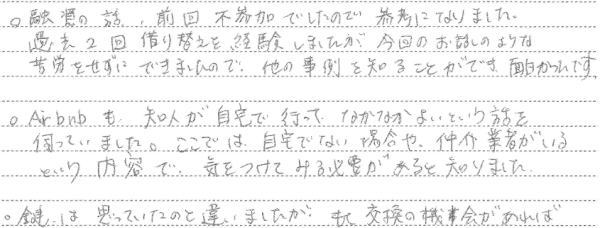 。融資の話、前回不参加でしたので参考になりました。
過去2回借り替えを経験しましたが今回のお話しのような
苦労をせずにできましたので、他の事例を知ることができ、面白かったです。
。Airbnbも、知人が自宅で行って、なかなかよいという話を
伺っていました。ここでは、自宅でない場合や、仲介業者がいる
という内容で、気をつけてみる必要があると知りました。
。鍵は思っていたのと違いましたが、交換の機会があれば